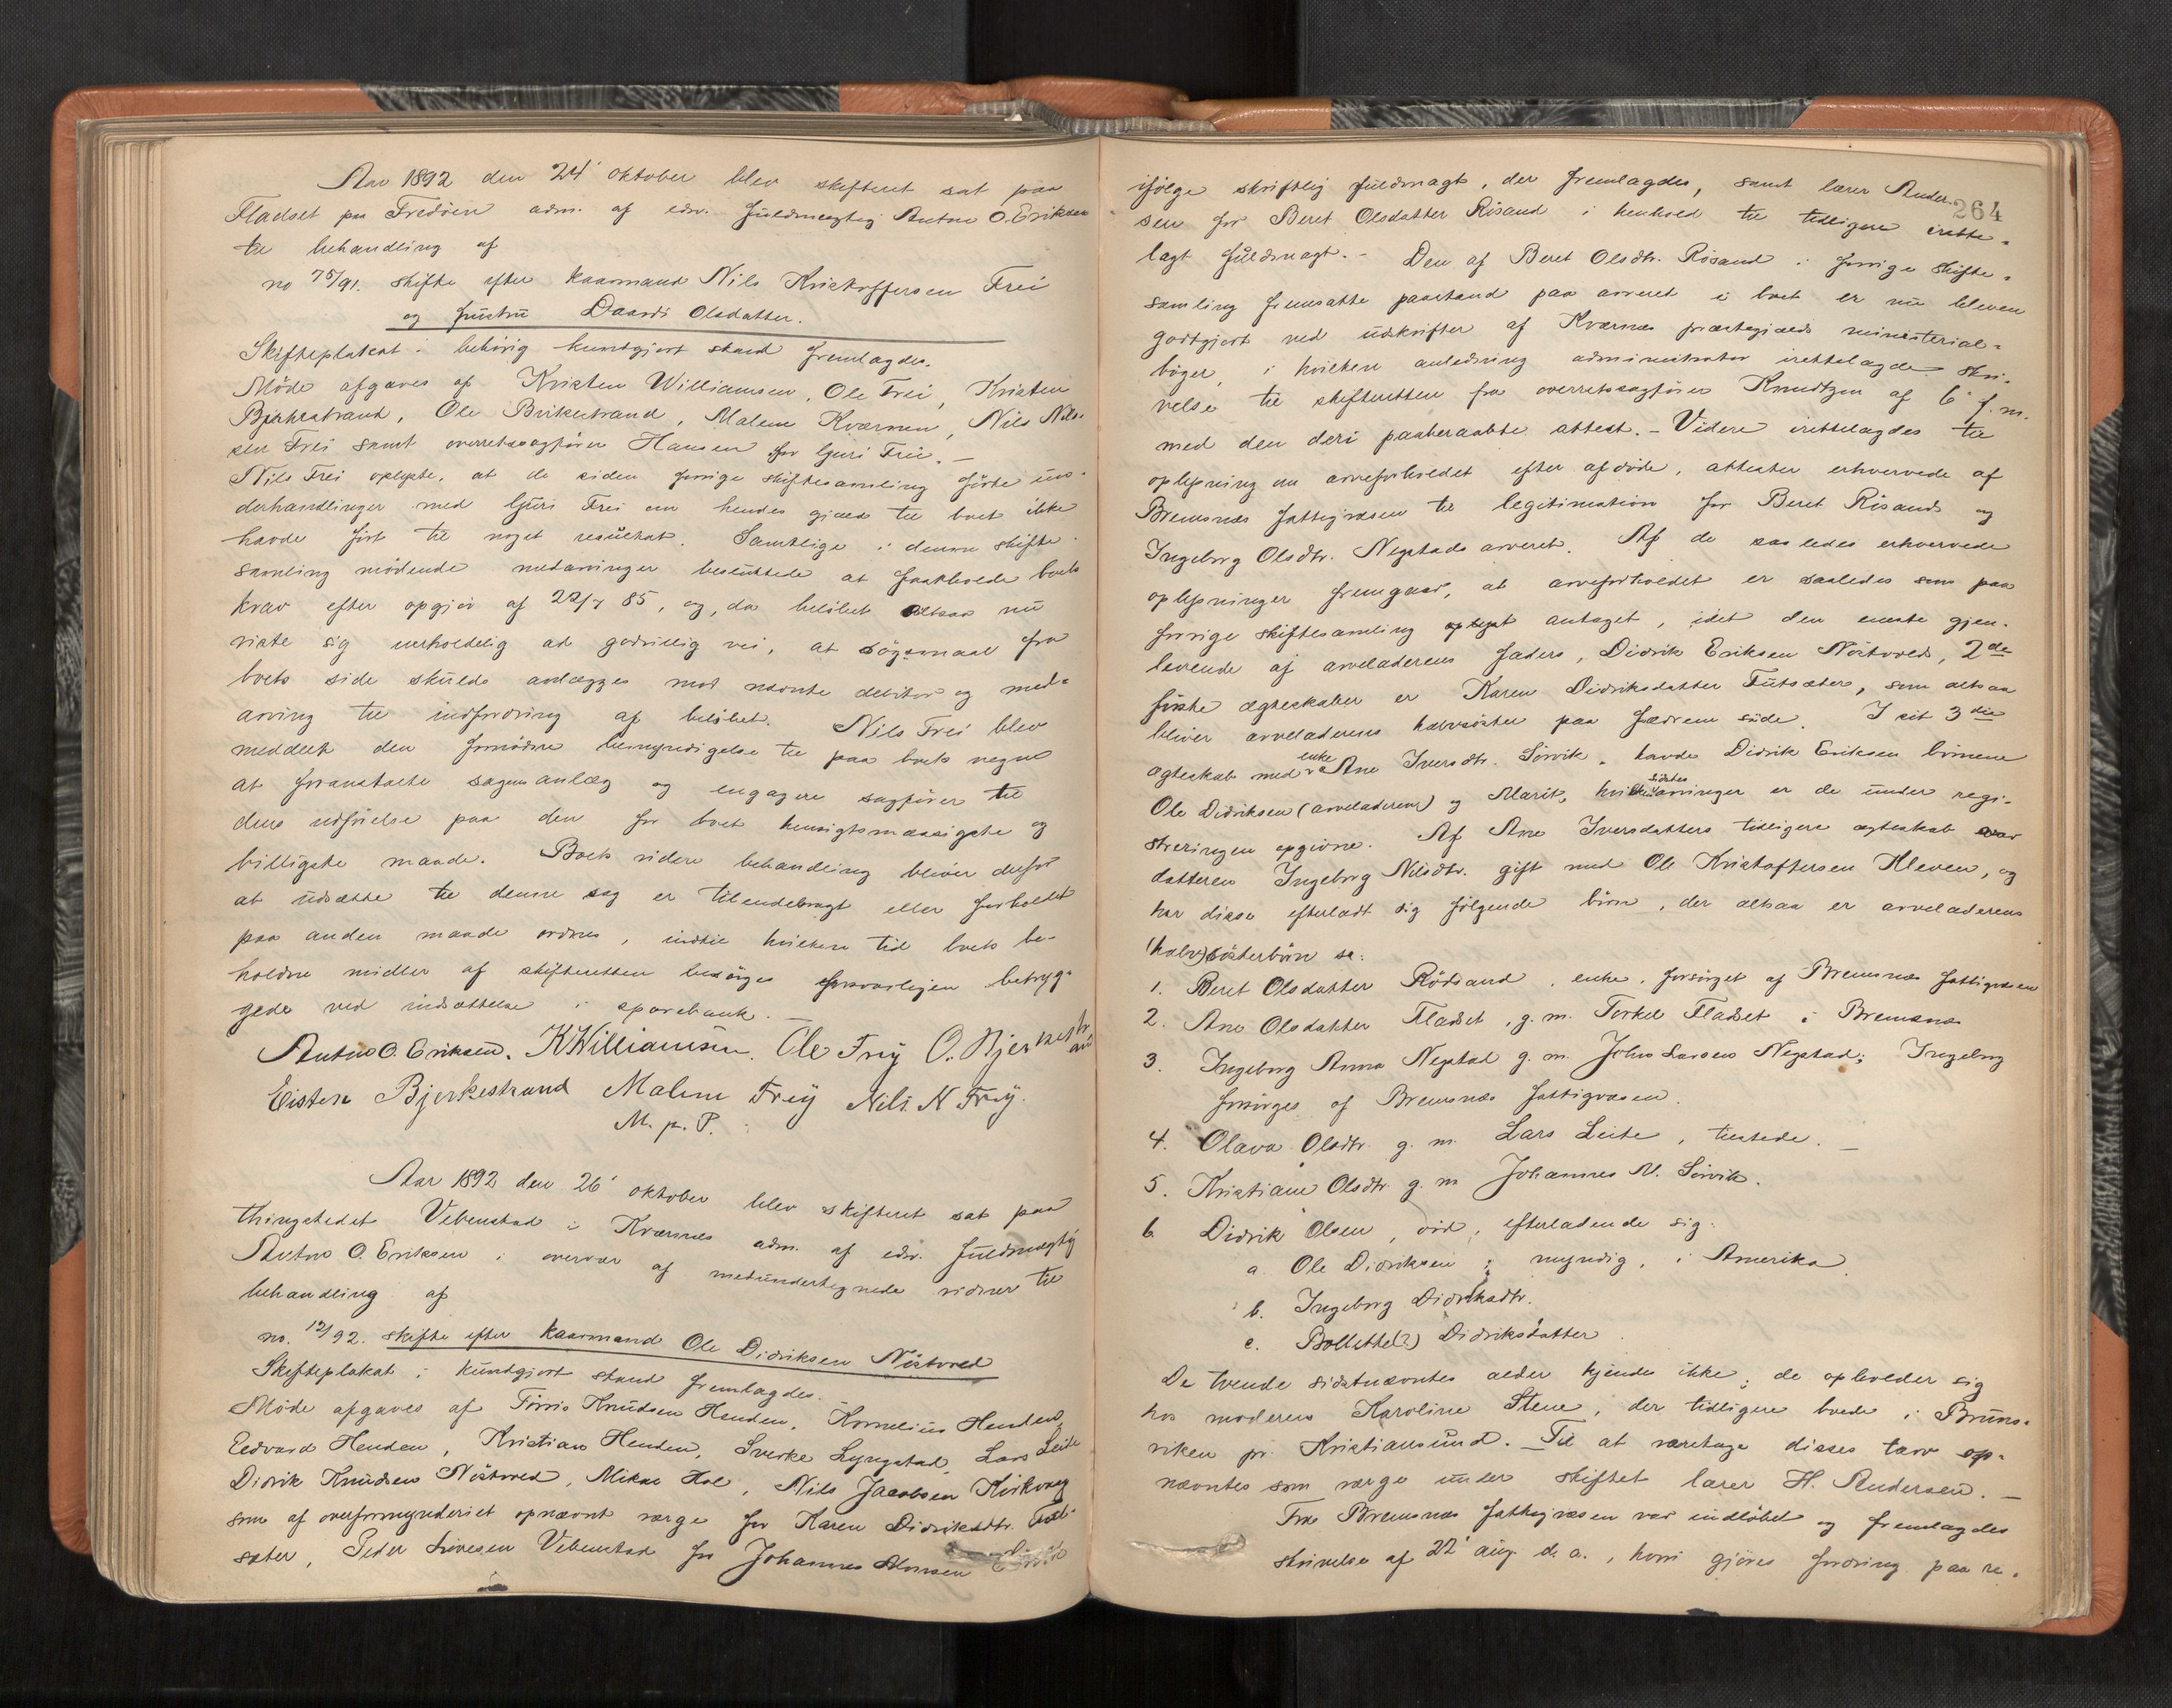 Aar 1892 den 24' oktober blev skifteret sat paa
Fladset pr Fredøen adm. af edsv. fuldmægtig Anton O. Eriksen
til behandling af
no 75/91. skifte efter kaarmand Nils Kristoffersen Frei
og hustru Daardi Olsdatter.
Skifteplakat i behørig kundgjort stand fremlagdes.
Møde afgaves af Kristen Williamsen, Ole Frei, Kristen
Bjerkestrand, Ole Birkestrand, Malene Kværnen, Nils Nils-
sen Frei samt overretssagfører Hansen for Guri Frei. –
Nils Frei oplyste, at de siden forrige skiftesamling førte un-
derhandlinger med Guri Frei om hendes gjæld til boet ikke
havde ført til noget resultat. Samtlige i denne skifte-
samling mødende medarvinger besluttede at fastholde boets
krav efter opgjør af 22/7 85, og, da beløbet altsaa nu
viste sig uerholdelig ad godvillig vei, at søgsmaal fra
boets side skulde anlægges mod nævnte debitor og med-
arving til indfordring af beløbet. Nils Frei blev
meddelt den fornødne bemyndigelse til paa boets vegne
at foranstalte sagens anlæg og engagere sagfører til
dens udførelse paa den for boet hensigtsmæssigste og
billigste maade. Boets videre behandling bliver derfor
at udsætte til denne sag er tilendebragt eller forholdet
paa anden maade ordnes, indtil hvilken tid boets be-
holdne midler af skifteretten besørges forsvarligen betryg-
gede ved indsættelse i sparebank. –
Anton O. Eriksen. K Williamsen. Ole Frey O. Bjerkestrand
Eisten Bjerkestrand Malene Frey Nils N Frey.
M. p. P.
Aar 1892 den 26' oktober blev skifteret sat paa
thingstedet Vebenstad i Kværnes adm. af edsv. fuldmægtig
Anton O. Eriksen i overvær af medundertegnede vidner til
behandling af
no. 12/92. skifte efter kaarmand Ole Didriksen Nøstvred
Skifteplakat i kundgjort stand fremlagdes.
Møde afgaves af Tørris Knudsen Henden, Kornelius Henden,
Edvard Henden, Kristian Henden, Sverke Lyngstad, Lars Leite
Didrik Knudsen Nøstvred, Mikal Hol, Nils Jacobsen Kvikvaag
som af overformynderiet opnævnt værge for Karen Didriksdtr. Fut-
sæter, Peder Iversen Vebenstad for Johannes Monsen
264
ifølge skriftlig fuldmagt, der fremlagdes, samt lærer Ander-
sen for Beret Olsdatter Røsand i henhold til tidligere irette-
lagt fuldmagt. – Den af Beret Olsdtr. Røsand i forrige skifte-
samling fremsatte paastand paa arveret i boet er nu bleven
godtgjort ved udskrifter af Kværnes præstegjelds ministerial-
bøger, i hvilken anledning administrator irettelagde skri-
velse til skifteretten fra overretssagfører Knudtzon af 6' f. m.
med den deri paaberaabte attest. – Videre irettelagdes til
oplysning om arveforholdet efter afdøde, attester erhvervede af
Bremsnes fattigvæsen til legitimation for Beret Røsands og
Ingeborg Olsdtr. Negstads arveret. Af de saaledes erhvervede
oplysninger fremgaar, at arveforholdet er saaledes som paa
forrige skiftesamling oplyst antaget, idet den eneste gjen-
levende af arveladerens faders, Didrik Eriksen Nøstvreds, 2de
første ægteskaber er Karen Didriksdatter Futsæter, som altsaa
bliver arveladerens halvsøster paa fædrene side. I sit 3die
ægteskab med enke Ane Iversdtr. Sørvik, havde Didrik Eriksen børnene
Ole Didriksen (arveladeren) og Marit, hvis sidstes arvinger er de under regi-
streringen opgivne. Af Ane Iversdatters tidligere ægteskab var
datteren Ingeborg Nilsdtr. gift med Ole Kristoffersen Kleven, og
har disse efterladt sig følgende børn, der altsaa er arveladerens
(halv)søsterbørn se:
1. Beret Olsdatter Rødsand, enke, forsørget af Bremsnes fattigvæsen
2. Ane Olsdatter Fladset, g. m. Torkel Fladset i Bremsnes
3. Ingeborg Anna Negstad g. m. John Larsen Negstad; Ingeborg
forsørges af Bremsnes fattigvæsen.
4. Olava Olsdtr. g. m. Lars Leite, tilstede. –
5. Kristiane Olsdtr. g. m Johannes M. Sørvik.
6. Didrik Olsen, død, efterladende sig:
a. Ole Didriksen, myndig, i Amerika
b. Ingeborg Didriksdtr.
c. Bollethe(?) Didriksdatter.
De tvende sidstnævntes alder kjendes ikke; de opholder sig
hos moderen Karoline Stene, der tidligere boede i Bruns-
viken pr. Kristiansund. Til at varetage disses tarv op-
nævntes som værge under skiftet lærer H. Andersen. –
Fra Bremsnes fattigvæsen var indløbet og fremlagdes
skrivelse af 22' aug. d. a., hvori gjøres fordring paa re-